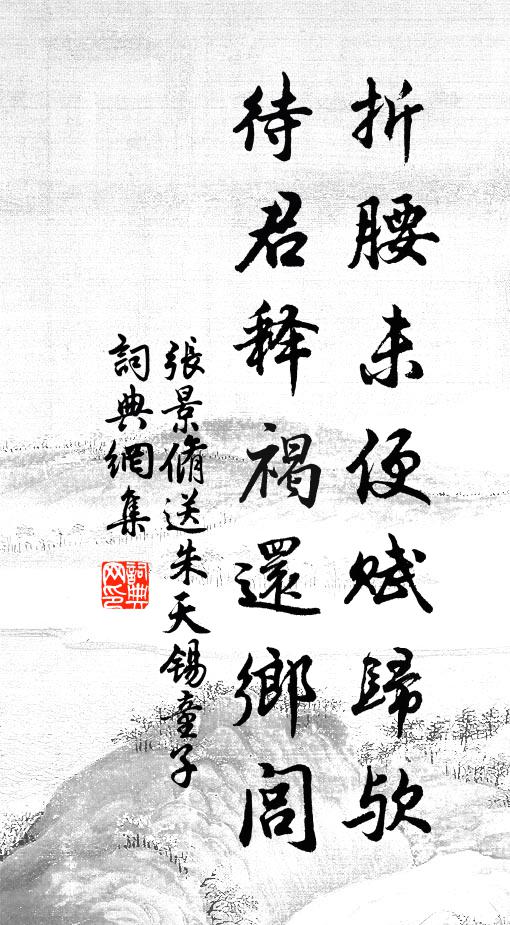 折腰未便賦歸欤
待君释褐還鄉閭
張景脩送朱天錫童子
詞典網集
詞典网印